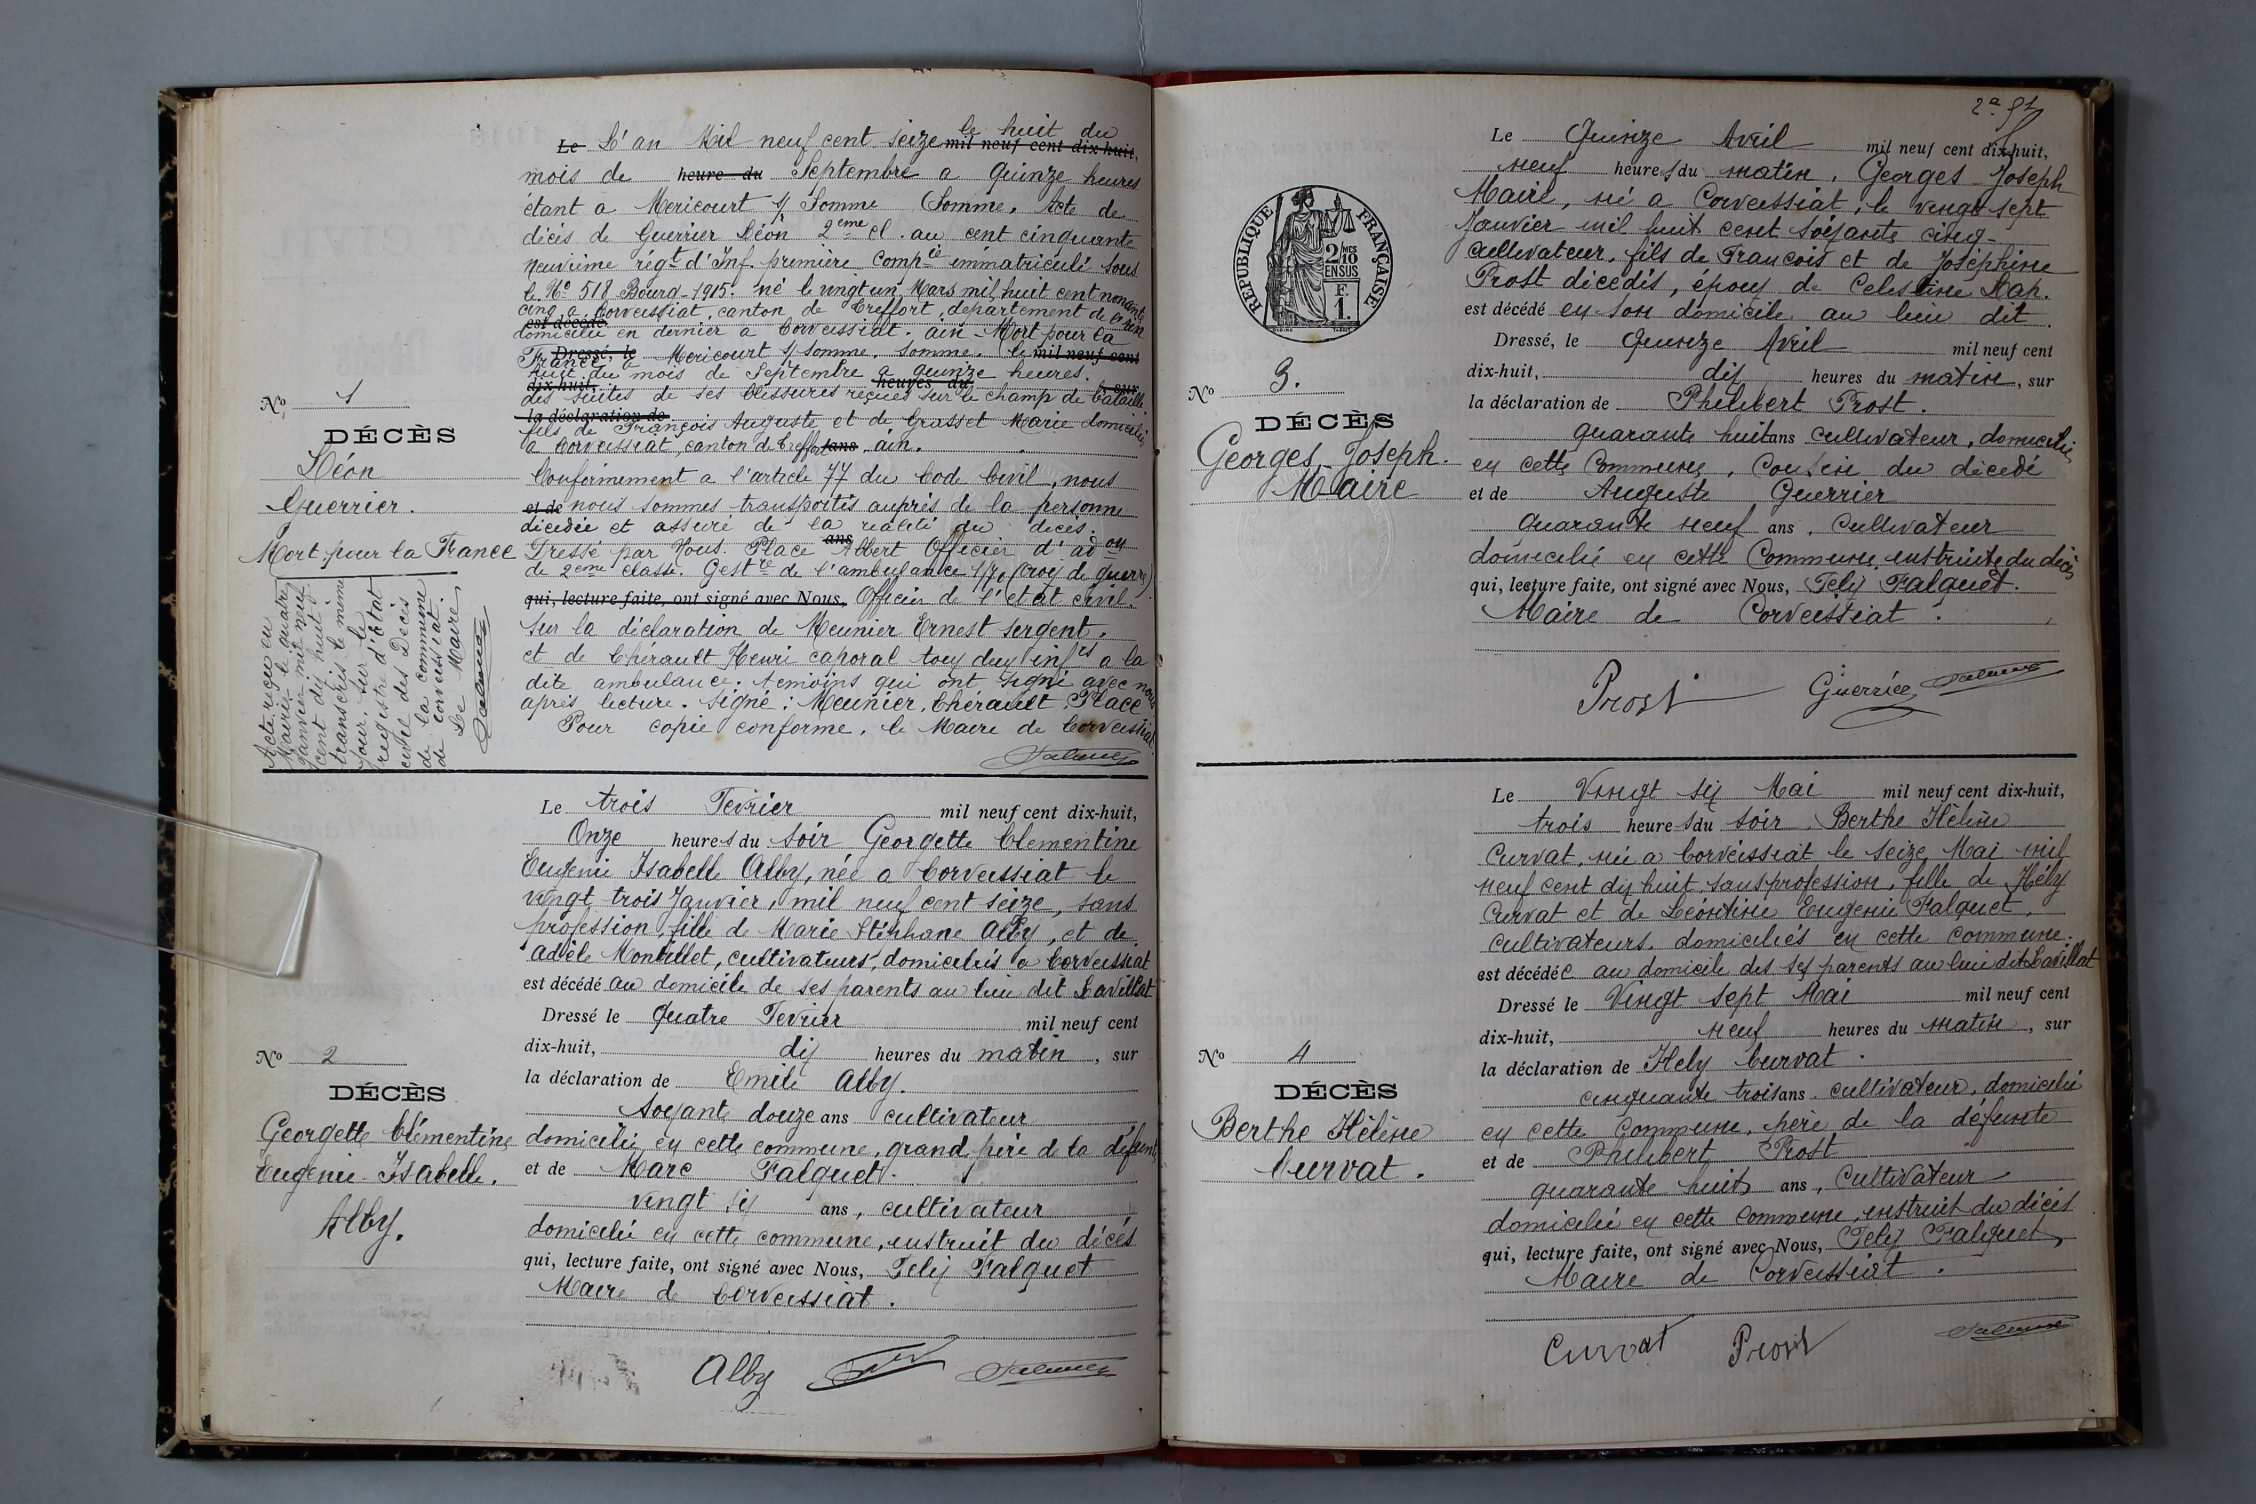 Le L'an Mil neuf cent seize le huit du mil neuf cent dix-huit,
mois de heure du Septembre a quinze heures
étant a Mericourt s/ Somme (Somme. Acte de
décès de Guerrier Léon 2ème cl. au cent cinquante
neuvième régt d'Inf. première Compie immatriculé sous
le No 518 Bourg-1915. né le vingt un Mars mil huit cent nonante
cinq a Corveissiat, canton de Treffort, departement de l'Ain
est décédé
domicilié en dernier a Corveissiat. ain - Mort pour la
Dressé, le mil neuf cent
France a Mericourt s/ Somme. Somme. le
huit du mois de Septembre a quinze heures.
dix-huit, heures du , sur
des suites de ses blessures reçues sur le champ de bataille
la déclaration de
fils de François Auguste et de Grasset Marie domiciliés
a Corveissiat, canton de Treffort ans ain.
Conformément a l'article 77 du Code Civil, nous
et de nous sommes transportés auprès de la personne
décédée et assuré de la réalité du décès.
ans
Dressé par Nous. Place Albert Officier d'adon
de 2ème classe. Gestre de l'ambulance 1/70 (Croix de guerre)
qui, lecture faite, ont signé avec Nous, Officier de l'état civil.
sur la déclaration de Meunier Ernest sergent.
et de Chérault Henri caporal tous deux infrs a la
dite ambulance. témoins qui ont signé avec nous
après lecture. Signé: Meunier, Chérault, Place
Pour copie conforme, le Maire de Corveissiat
No 1
DÉCÈS
Léon
Guerrier.
Mort pour la France
Acte reçu en
Mairie le quatre
janvier mil neuf
cent dix huit
transcris le même
jour, sur le
registre d'état
civil des Décès
de la commune
de Corveissiat.
Le Maire,
Le trois Fevrier mil neuf cent dix-huit,
Onze heures du soir Georgette Clementine
Eugenie Isabelle Alby, née a Corveissiat le
vingt trois Janvier, mil neuf cent seize, sans
profession, fille de Marie Stéphane Alby, et de
adèle Montillet, cultivateurs, domiciliés a Corveissiat
est décédé au domicile de ses parents au lieu dit Lavillat
Dressé le quatre Fevrier mil neuf cent
dix-huit, dix heures du matin, sur
la déclaration de Emile Alby.
soixante douze ans cultivateur
domicilié en cette commune, grand père de la défunte
et de Marc Falquet.
vingt six ans, cultivateur
domicilié en cette commune, instruit du décés
qui, lecture faite, ont signé avec Nous, Felix Falquet
Maire de Corveissiat.
Alby
No 2
DÉCÈS
Georgette Clémentine
Eugenie Isabelle.
Alby.
RÉPUBLIQUE FRANÇAISE
2/10 MES
EN SUS
F.
1.
Le Quinze Avril mil neuf cent dix-huit,
neuf heures du matin, Georges Joseph
Maire, né a Corveissiat, le vingt sept
Janvier mil huit cent soixante cinq
cultivateur, fils de Francois et de Joséphine
Prost décédés, époux de Celestine Nap.
est décédé en son domicile au lieu dit
Dressé, le Quinze Avril mil neuf cent
dix-huit, dix heures du matin, sur
la déclaration de Philibert Prost.
quarante huit ans cultivateur, domicilié
en cette Commune, Cousin du décédé
et de Auguste Guerrier
quarante neuf ans, cultivateur
domicilié en cette Commune, instruits du décès
qui, lecture faite, ont signé avec Nous, Felix Falquet.
Maire de Corveissiat.
Prost Guerrier
No 3.
DÉCÈS
Georges Joseph.
Maire
Le Vingt six Mai mil neuf cent dix-huit,
trois heures du soir, Berthe Hélène
Curvat, née a Corveissiat le seize Mai mil
neuf cent dix huit, sans profession, fille de Hély
Curvat et de Léontine Eugenie Falquet,
cultivateurs, domiciliés en cette commune.
est décédée au domicile des ses parents au lieu dit Lavillat
Dressé le Vingt sept Mai mil neuf cent
dix-huit, neuf heures du matin, sur
la déclaration de Hely Curvat.
cinquante trois ans cultivateur, domicilié
en cette Commune, père de la défunte
et de Philibert Prost
quarante huit ans, Cultivateur
domicilié en cette commune, instruit du décés
qui, lecture faite, ont signé avec Nous, Felix Falquet,
Maire de Corveissiat.
Curvat Prost
No 4
DÉCÈS
Berthe Hélène
Curvat.